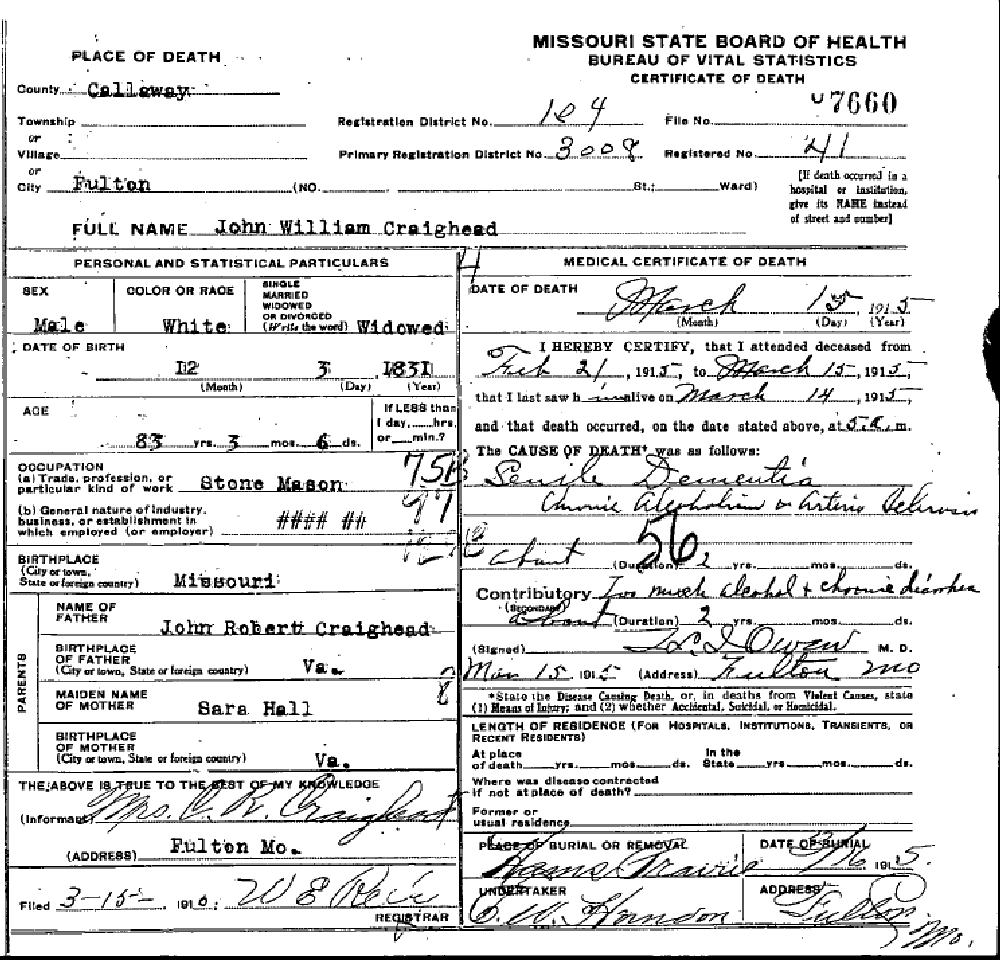 MISSOURI STATE BOARD OF HEALTH
BUREAU OF VITAL STATISTICS
CERTIFICATE OF DEATH
PLACE OF DEATH
County Callaway
Township
or
Village
or
City Fulton (NO. St.; Ward)
Registration District No. 104 File No. 7660
Primary Registration District No. 3008 Registered No. 41
[If death occurred in a
hospital or institution,
give its NAME instead
of street and number]
FULL NAME John William Craighead
PERSONAL AND STATISTICAL PARTICULARS
SEX
Male
COLOR OR RACE
White
SINGLE
MARRIED
WIDOWED
OR DIVORCED
(Write the word) Widowed
DATE OF BIRTH
12 3 1831
(Month) (Day) (Year)
AGE
83 yrs. 3 mos. 6 ds.
If LESS than
1 day, hrs.
or min.?
OCCUPATION
(a) Trade, profession, or
particular kind of work Stone Mason
(b) General nature of industry,
business, or establishment in
which employed (or employer) #### ##
BIRTHPLACE
(City or town,
State or foreign country) Missouri
PARENTS
NAME OF
FATHER
John Robert Craighead
BIRTHPLACE
OF FATHER
(City or town, State or foreign country) Va.
MAIDEN NAME
OF MOTHER
Sara Hall
BIRTHPLACE
OF MOTHER
(City or town, State or foreign country) Va.
THE ABOVE IS TRUE TO THE BEST OF MY KNOWLEDGE
(Informant) Mrs. Craighead
(ADDRESS) Fulton Mo.
Filed 3-15- 191 W E
REGISTRAR
MEDICAL CERTIFICATE OF DEATH
DATE OF DEATH
March 15 1915
(Month) (Day) (Year)
I HEREBY CERTIFY, that I attended deceased from
Feb 21, 1915, to March 15, 1915,
that I last saw him alive on March 14, 1915,
and that death occurred, on the date stated above, at 5 a. m.
The CAUSE OF DEATH* was as follows:
Senile Dementia
Chronic Alcoholism or Arterio Sclerosis
56
about (Duration) 2 yrs. mos. ds.
Contributory Too much alcohol + chronic diarrhea
(SECONDARY)
about (Duration) 2 yrs. mos. ds.
(Signed) Owen M. D.
Mar 15 1915 (Address) Fulton Mo
*State the Disease Causing Death, or, in deaths from Violent Causes, state
(1) Means of Injury; and (2) whether Accidental, Suicidal, or Homicidal.
LENGTH OF RESIDENCE (FOR HOSPITALS, INSTITUTIONS, TRANSIENTS, OR
RECENT RESIDENTS)
At place In the
of death yrs. mos. ds. State yrs. mos. ds.
Where was disease contracted
if not at place of death?
Former or
usual residence
PLACE OF BURIAL OR REMOVAL
Hams Prairie
DATE OF BURIAL
3/16 1915.
UNDERTAKER
E. W. Herndon
ADDRESS
Fulton
Mo.